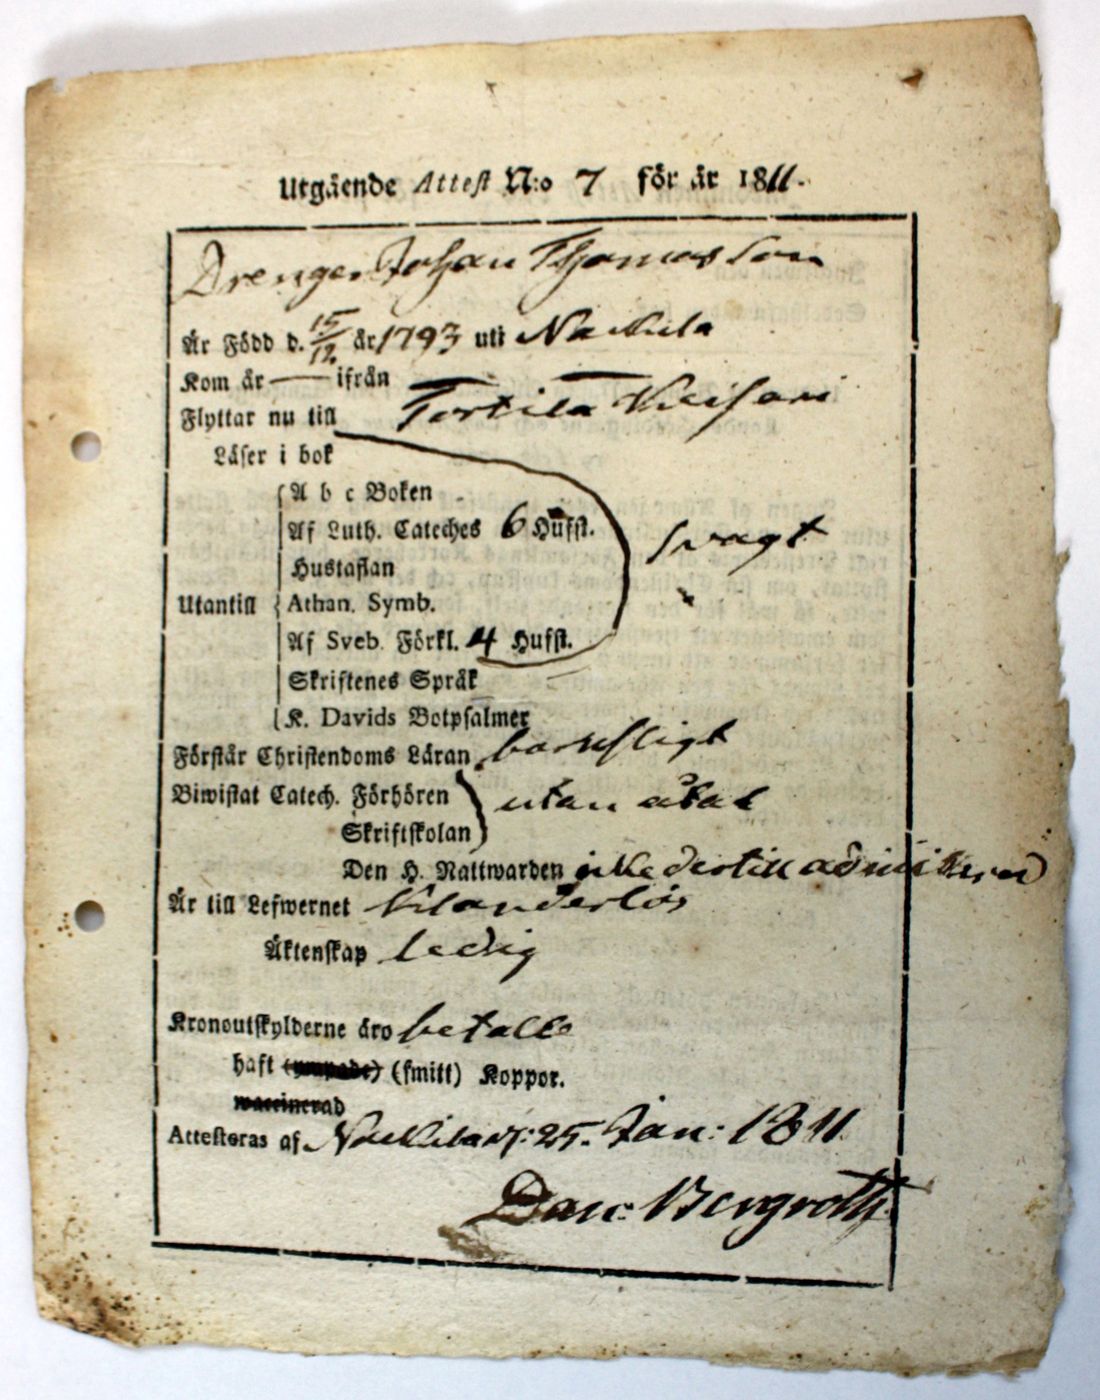 Utgående Attest N:o 7 för år 1811.
Drengen Johan Thomasson
Är Född d. 15/12 år 1793 uti Nackila
Kom år — ifrån
Flyttar nu till Tortila Keisari
Läser i bok
A b c Boken
Af Luth. Cateches 6 Hufst.
svagt
Hustaflan
Utantill Athan. Symb.
Af Sveb. Förkl. 4 Hufst.
Skriftenes Språk
K. Davids Botpsalmer
Förstår Christendoms Läran
Biwistat Catech. Förhören utan åtal
Skriftskolan
Den H. Nattwarden icke dertill admitterad
Är till Lefwernet klanderlös
Äktenskap ledig
Kronoutskylderne äro betalte
haft (ympade) (smitt) Koppor.
waccinerad
Attesteras af Nackila d: 25. Jan: 1811.
Dan: Bergroth